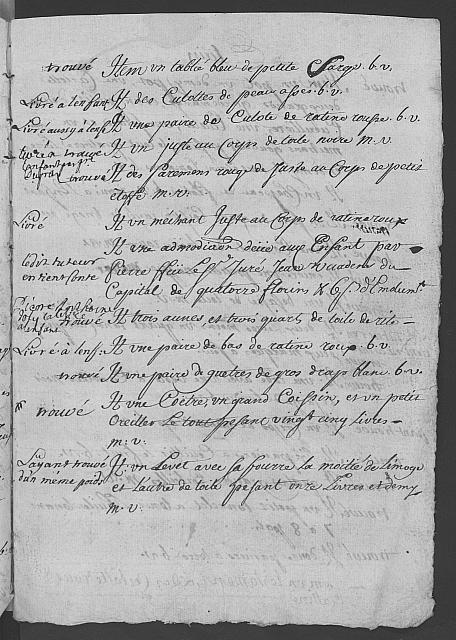 trouvé Item vn tablé bleu de petite Sarge b.v.
Livré a l'enfant It des Culottes de peau asses b.v.
Livré aussy à l'enf. It vne paire de Culote de ratine rousse b.v.
It vn juste au Corps de toile noire m.v.
trouvé It des paremens rouge de juste au Corps de petit
étoffe m.v.
Livré It vn méchant juste au Corps de ratine roux
It vne admodiation aux Enfant par
Pierre Jean du
Capital de quatorze florins & 6 s
trouvé It trois aunes et trois quars de toile de rite
Livré à l'enf. It vne paire de bas de ratine roux b.v.
trouvé It vne paire de guetres de gros drap blanc b.v.
trouvé It vne Coëtre, vn grand Coessin, et vn petit
Oreiller Le tout pesant vingt cinq Livres
m.v.
L'ayant trouvé It vn Levet avec sa fourre la moitié de Limoge
d'un meme poids et l'autre de toile pesant onze Livres et demy
m.v.